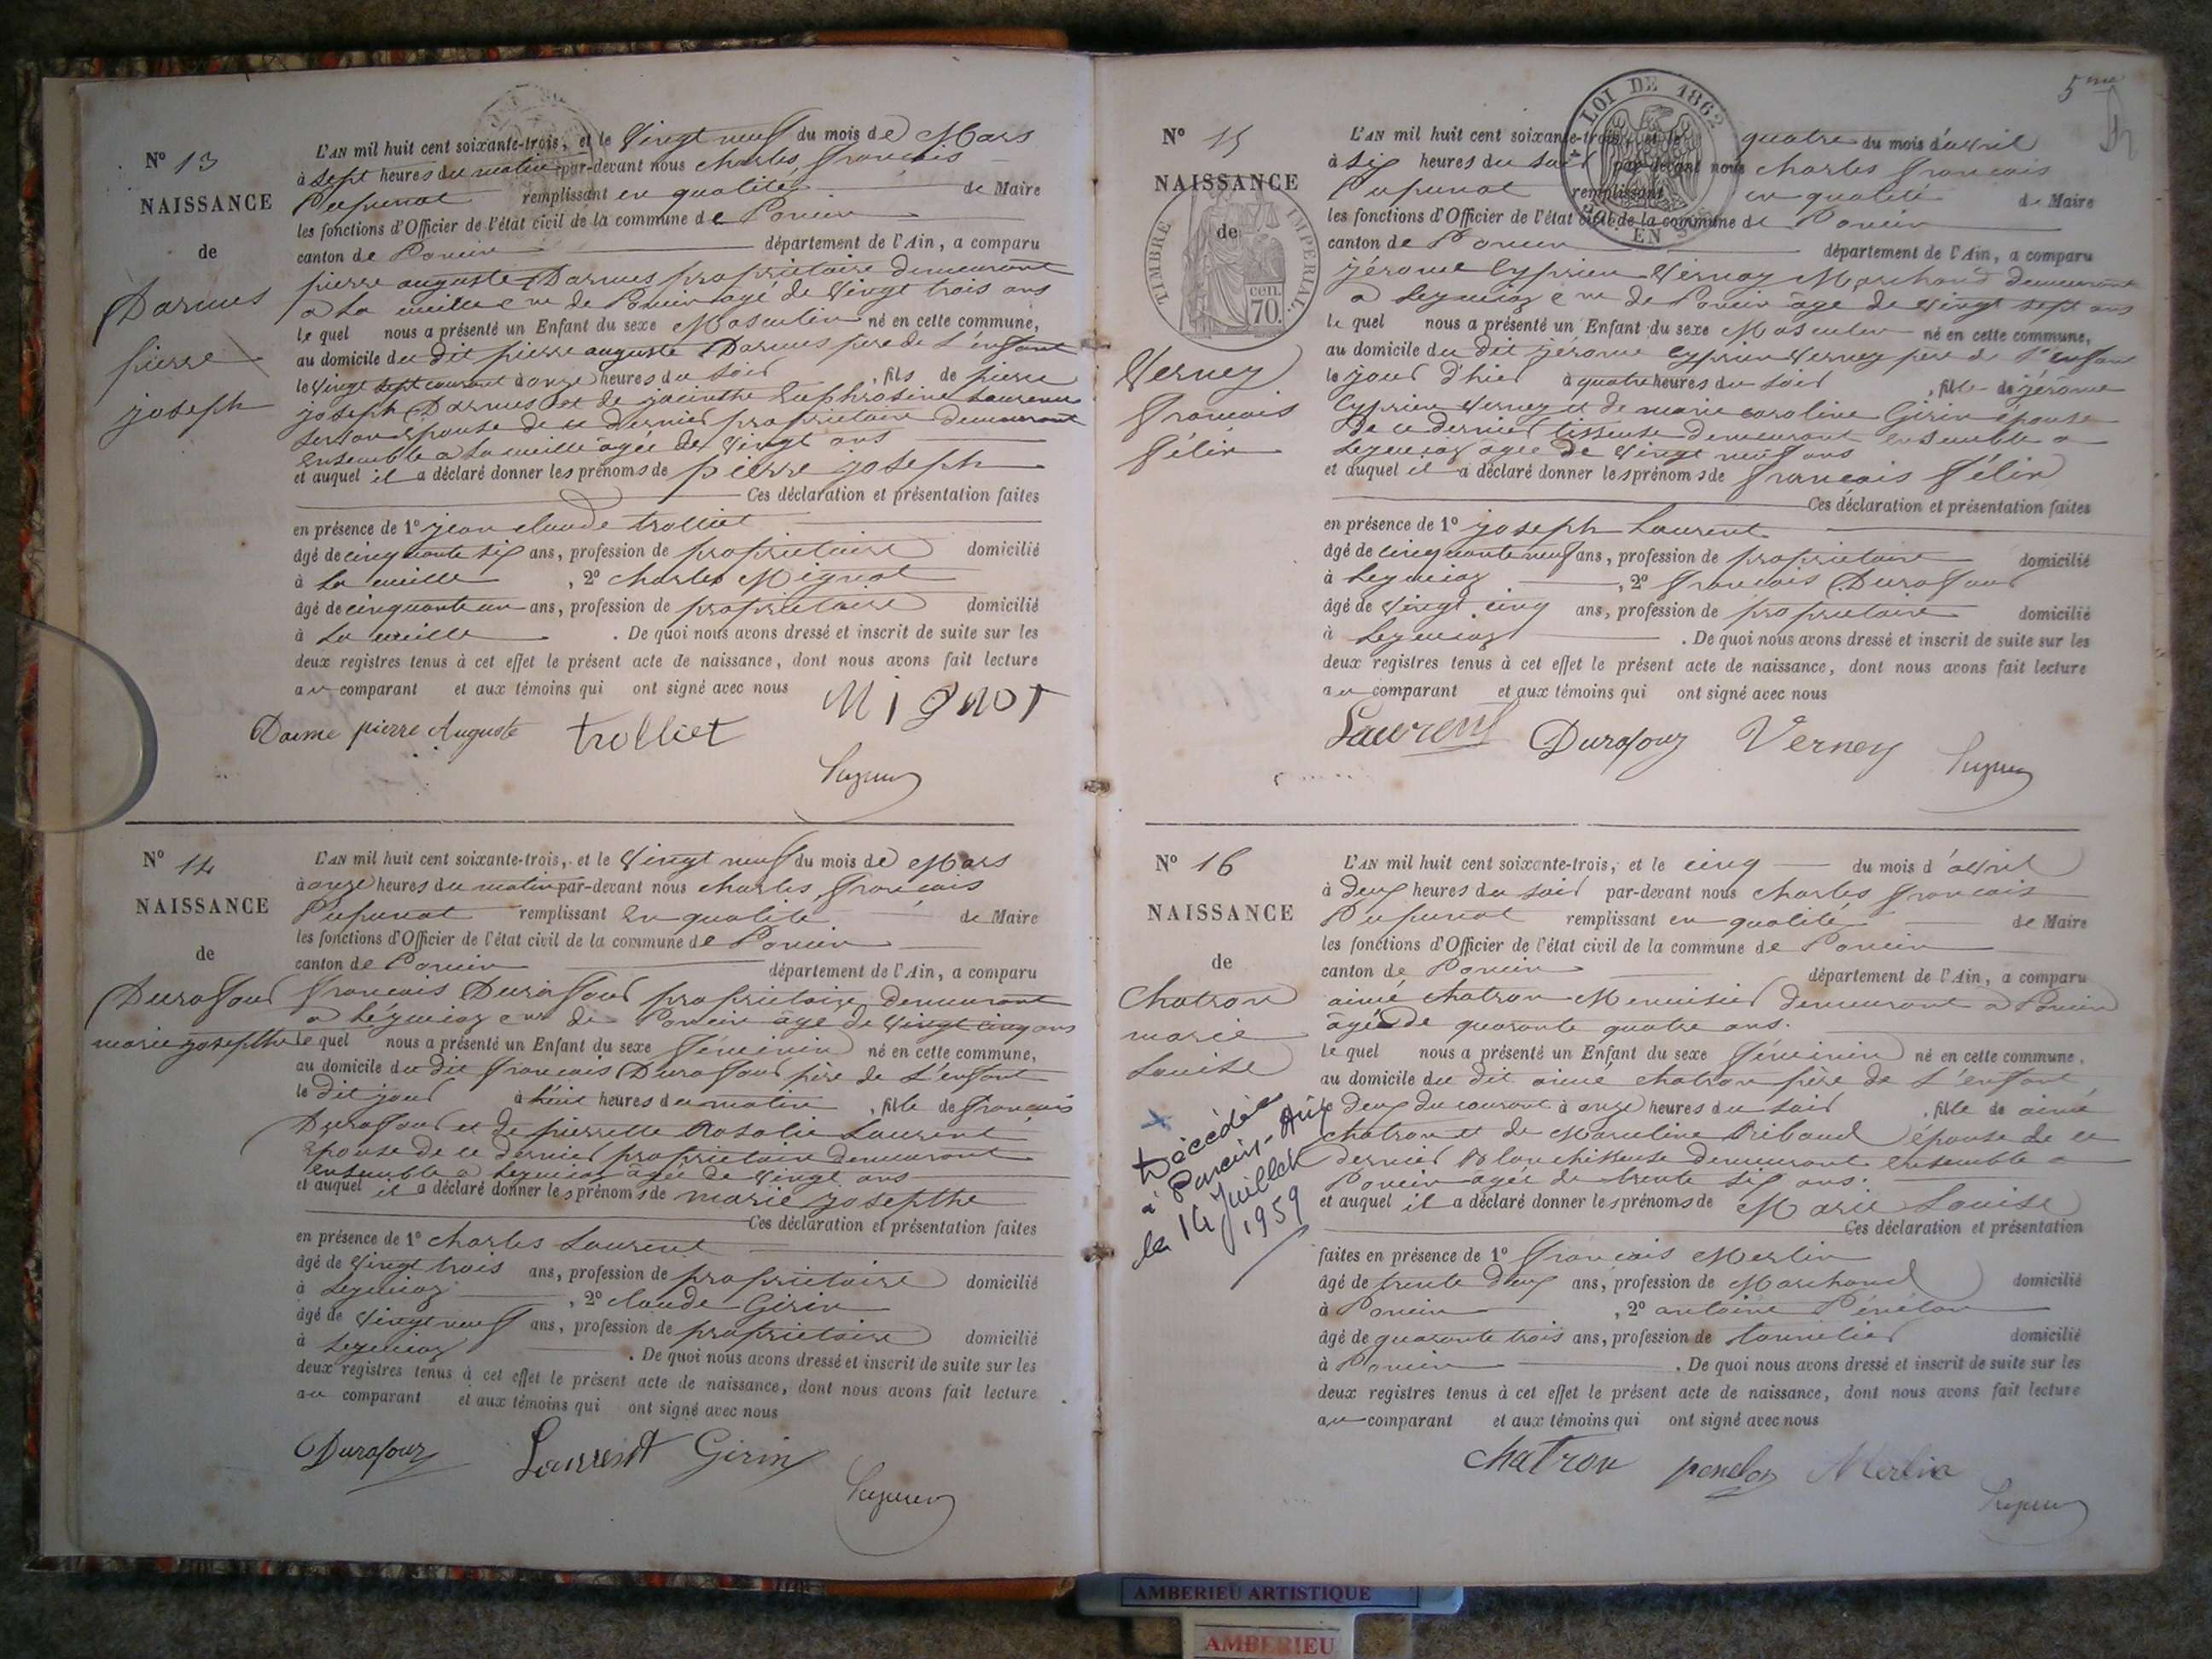 N° 13
NAISSANCE
de
Darmes
pierre
joseph
L'AN mil huit cent soixante-trois, et le Vingt neuf du mois de Mars
à sept heures du matin par-devant nous charles francois
Pupunat remplissant en qualité de Maire
les fonctions d'Officier de l'état civil de la commune de Poncin
canton de Poncin département de l'Ain, a comparu
pierre auguste Darmes proprietaire demeurant
a La cueille cne de Poncin agé de Vingt trois ans
le quel nous a présenté un Enfant du sexe Masculin né en cette commune,
au domicile du dit pierre auguste Darmes pere de L'enfant
le Vingt sept courant à onze heures du soir, fils de pierre
joseph Darmes et de jacinthe Euphrosine Laurence
épouse de ce dernier proprietaire demeurant
ensemble a La cueille agée de Vingt ans
et auquel il a déclaré donner les prénoms de pierre joseph
Ces déclaration et présentation faites
en présence de 1° jean claude trolliet
âgé de cinquante six ans, profession de proprietaire domicilié
à La cueille, 2° charles Mignot
âgé de cinquante un ans, profession de proprietaire domicilié
à La cueille. De quoi nous avons dressé et inscrit de suite sur les
deux registres tenus à cet effet le présent acte de naissance, dont nous avons fait lecture
au comparant et aux témoins qui ont signé avec nous
Darme pierre Auguste trolliet Mignot
N° 14
NAISSANCE
de
Durafour
marie josepthe
L'AN mil huit cent soixante-trois, et le Vingt neuf du mois de Mars
à onze heures du matin par-devant nous charles francois
Pupunat remplissant en qualité de Maire
les fonctions d'Officier de l'état civil de la commune de Poncin
canton de Poncin département de l'Ain, a comparu
francois Durafour proprietaire demeurant
a Leymiaz cne de Poncin âgé de Vingt cinq ans
le quel nous a présenté un Enfant du sexe féminin né en cette commune,
au domicile du dit francois Durafour père de L'enfant
le dit jour à huit heures du matin, fille de francois
Durafour et de pierrette Rosalie Laurent
Epouse de ce dernier proprietaire demeurant
ensemble a Leymiaz âgée de Vingt ans
et auquel il a déclaré donner les prénoms de marie josepthe
Ces déclaration et présentation faites
en présence de 1° charles Laurent
âgé de Vingt trois ans, profession de proprietaire domicilié
à Leymiaz, 2° claude Girin
âgé de Vingt neuf ans, profession de proprietaire domicilié
à Leymiaz. De quoi nous avons dressé et inscrit de suite sur les
deux registres tenus à cet effet le présent acte de naissance, dont nous avons fait lecture
au comparant et aux témoins qui ont signé avec nous
Durafour Laurent Girin
5me
LOI DE 1862
N° 15
NAISSANCE
de
TIMBRE IMPERIAL
70 cen.
Verney
francois
félix
L'AN mil huit cent soixante-trois, et le quatre du mois d'avril
à six heures du soir par-devant nous charles francois
Pupunat remplissant en qualité de Maire
les fonctions d'Officier de l'état civil de la commune de Poncin
canton de Poncin département de l'Ain, a comparu
jérome Cyprien Verney Marchand demeurant
a Leymiaz cne de Poncin âgé de vingt sept ans
le quel nous a présenté un Enfant du sexe Masculin né en cette commune,
au domicile du dit jérome Cyprien Verney père de L'enfant
le jour d'hier à quatre heures du soir, fils de jérome
Cyprien Verney et de marie caroline Girin épouse
de ce dernier tisseuse demeurant ensemble a
Leymiaz agée de Vingt neuf ans
et auquel il a déclaré donner les prénoms de francois félix
Ces déclaration et présentation faites
en présence de 1° joseph Laurent
âgé de cinquante neuf ans, profession de proprietaire domicilié
à Leymiaz, 2° francois Durafour
âgé de Vingt cinq ans, profession de proprietaire domicilié
à Leymiaz. De quoi nous avons dressé et inscrit de suite sur les
deux registres tenus à cet effet le présent acte de naissance, dont nous avons fait lecture
au comparant et aux témoins qui ont signé avec nous
Laurent Durafour Verney
N° 16
NAISSANCE
de
Chatron
marie
Louise
Décédée
à Poncin-Ain
le 14 Juillet
1959
L'AN mil huit cent soixante-trois, et le cinq du mois d'avril
à deux heures du soir par-devant nous charles francois
Pupunat remplissant en qualité de Maire
les fonctions d'Officier de l'état civil de la commune de Poncin
canton de Poncin département de l'Ain, a comparu
aimé chatron Menuisier demeurant a Poncin
âgé de quarante quatre ans.
le quel nous a présenté un Enfant du sexe féminin né en cette commune,
au domicile du dit aimé chatron père de L'enfant
le deux du courant à onze heures du soir, fille de aimé
chatron et de Marceline Ribaud épouse de ce
dernier Blanchisseuse demeurant ensemble a
Poncin agée de trente six ans.
et auquel il a déclaré donner les prénoms de Marie Louise
Ces déclaration et présentation
faites en présence de 1° francois Merlin
âgé de trente deux ans, profession de Marchand domicilié
à Poncin, 2° antoine Pénélon
âgé de quarante trois ans, profession de tonnelier domicilié
à Poncin. De quoi nous avons dressé et inscrit de suite sur les
deux registres tenus à cet effet le présent acte de naissance, dont nous avons fait lecture
au comparant et aux témoins qui ont signé avec nous
chatron penelon Merlin
AMBERIEU ARTISTIQUE
AMBERIEU